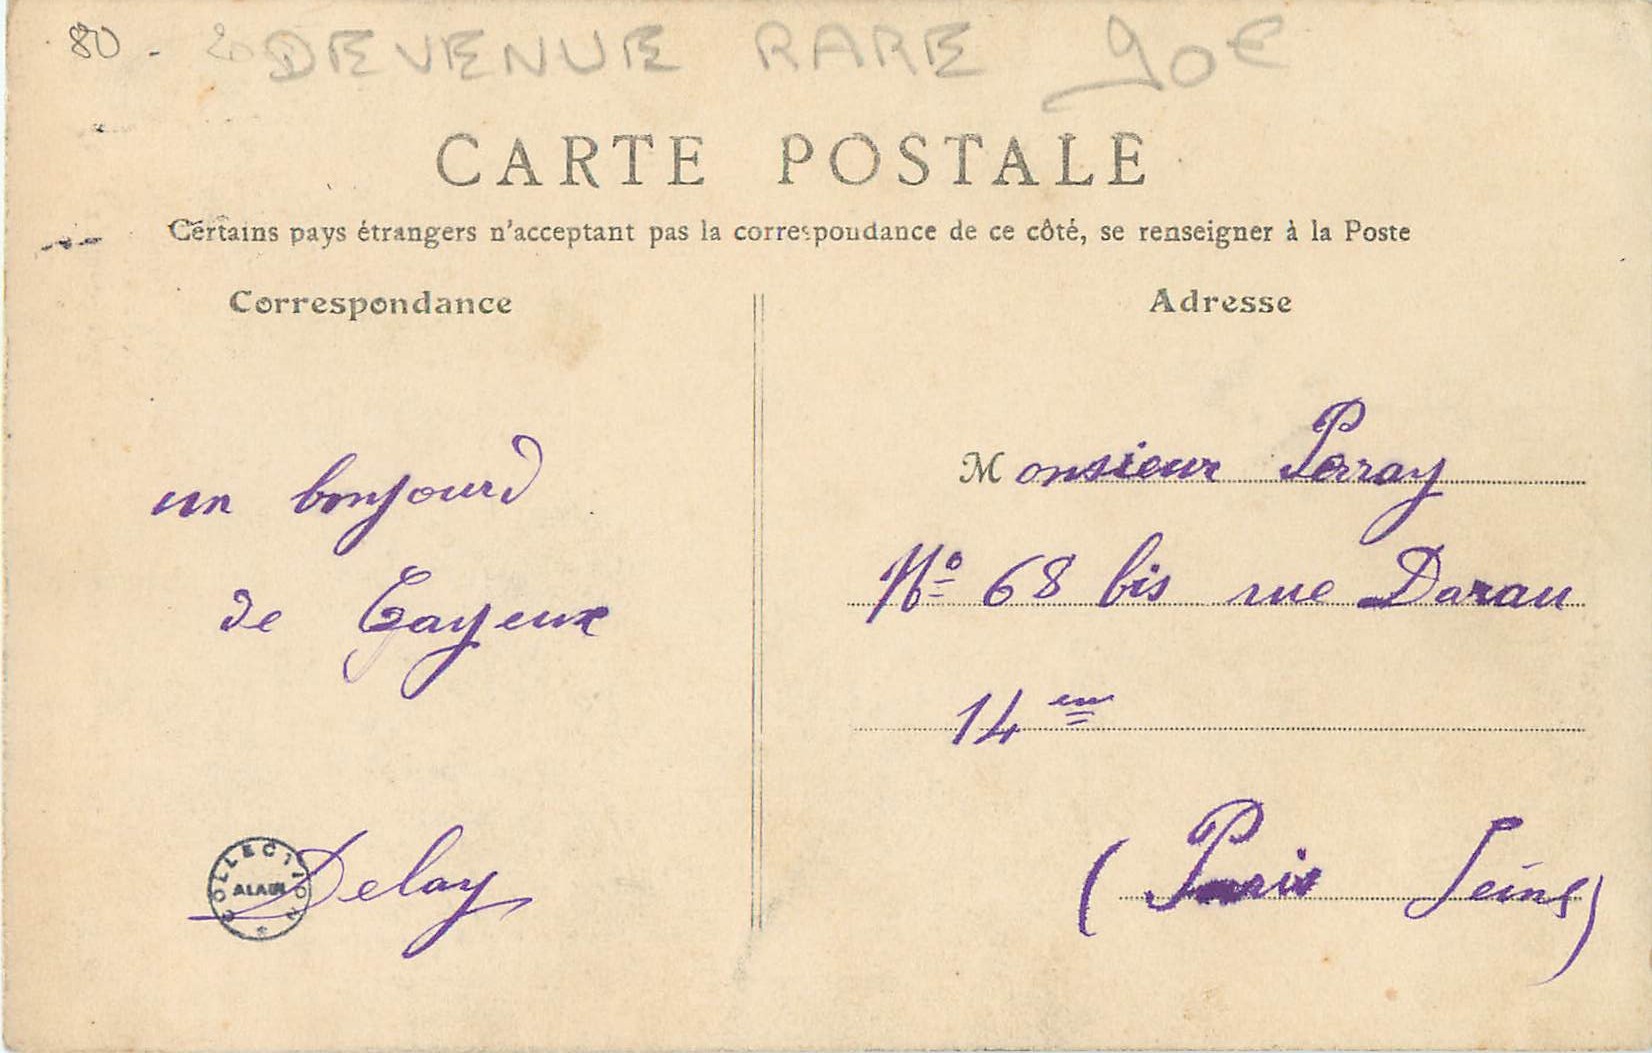 80 - DEVENUE RARE 90€
CARTE POSTALE
Certains pays étrangers n'acceptant pas la correspondance de ce côté, se renseigner à la Poste
Correspondance
Adresse
un bonjour
de Cayeux
Delay
COLLECTION
ALAIN
Monsieur Perray
No 68 bis rue Darau
14 em
(Paris Seine)